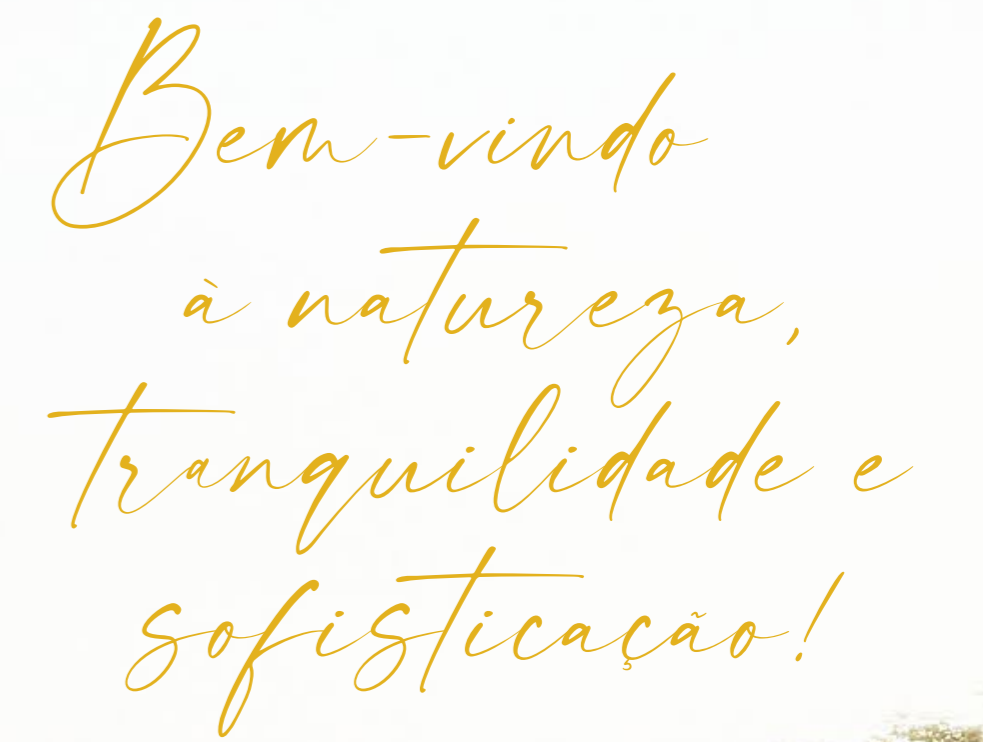 Bem-vindo
à natureza,
tranquilidade e
sofisticação!